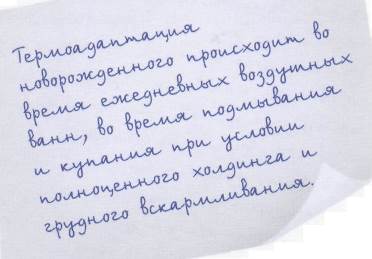 Термоадаптация
новорожденного происходит во
время ежедневных воздушных
ванн, во время подмывания
и купания при условии
полноценного холдинга и
грудного вскармливания.